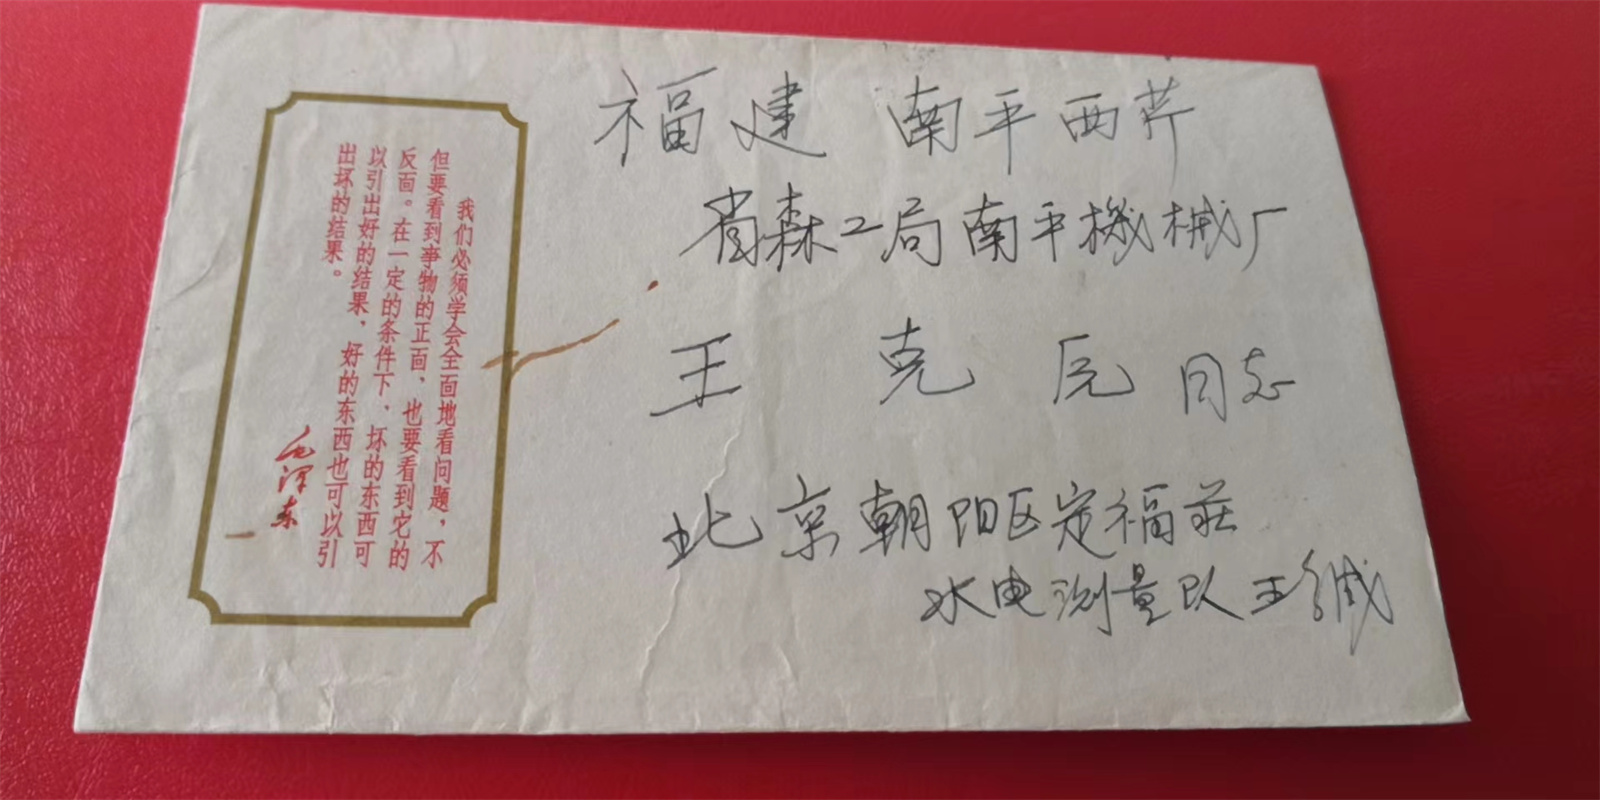 我们必须学会全面地看问题，不
但要看到事物的正面、也要看到它的
反面。在一定的条件下，坏的东西可
以引出好的结果，好的东西也可以引
出坏的结果。
毛泽东
福建 南平西芹
省森工局南平機械厂
王克 同志
北京朝阳区定福莊
水电测量队王缄